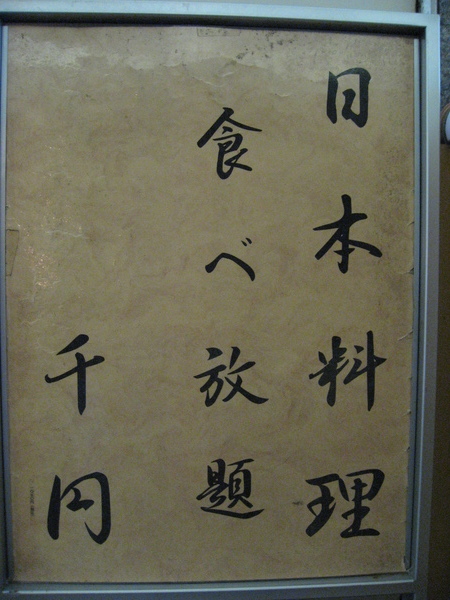 日本料理
食べ放題
千円